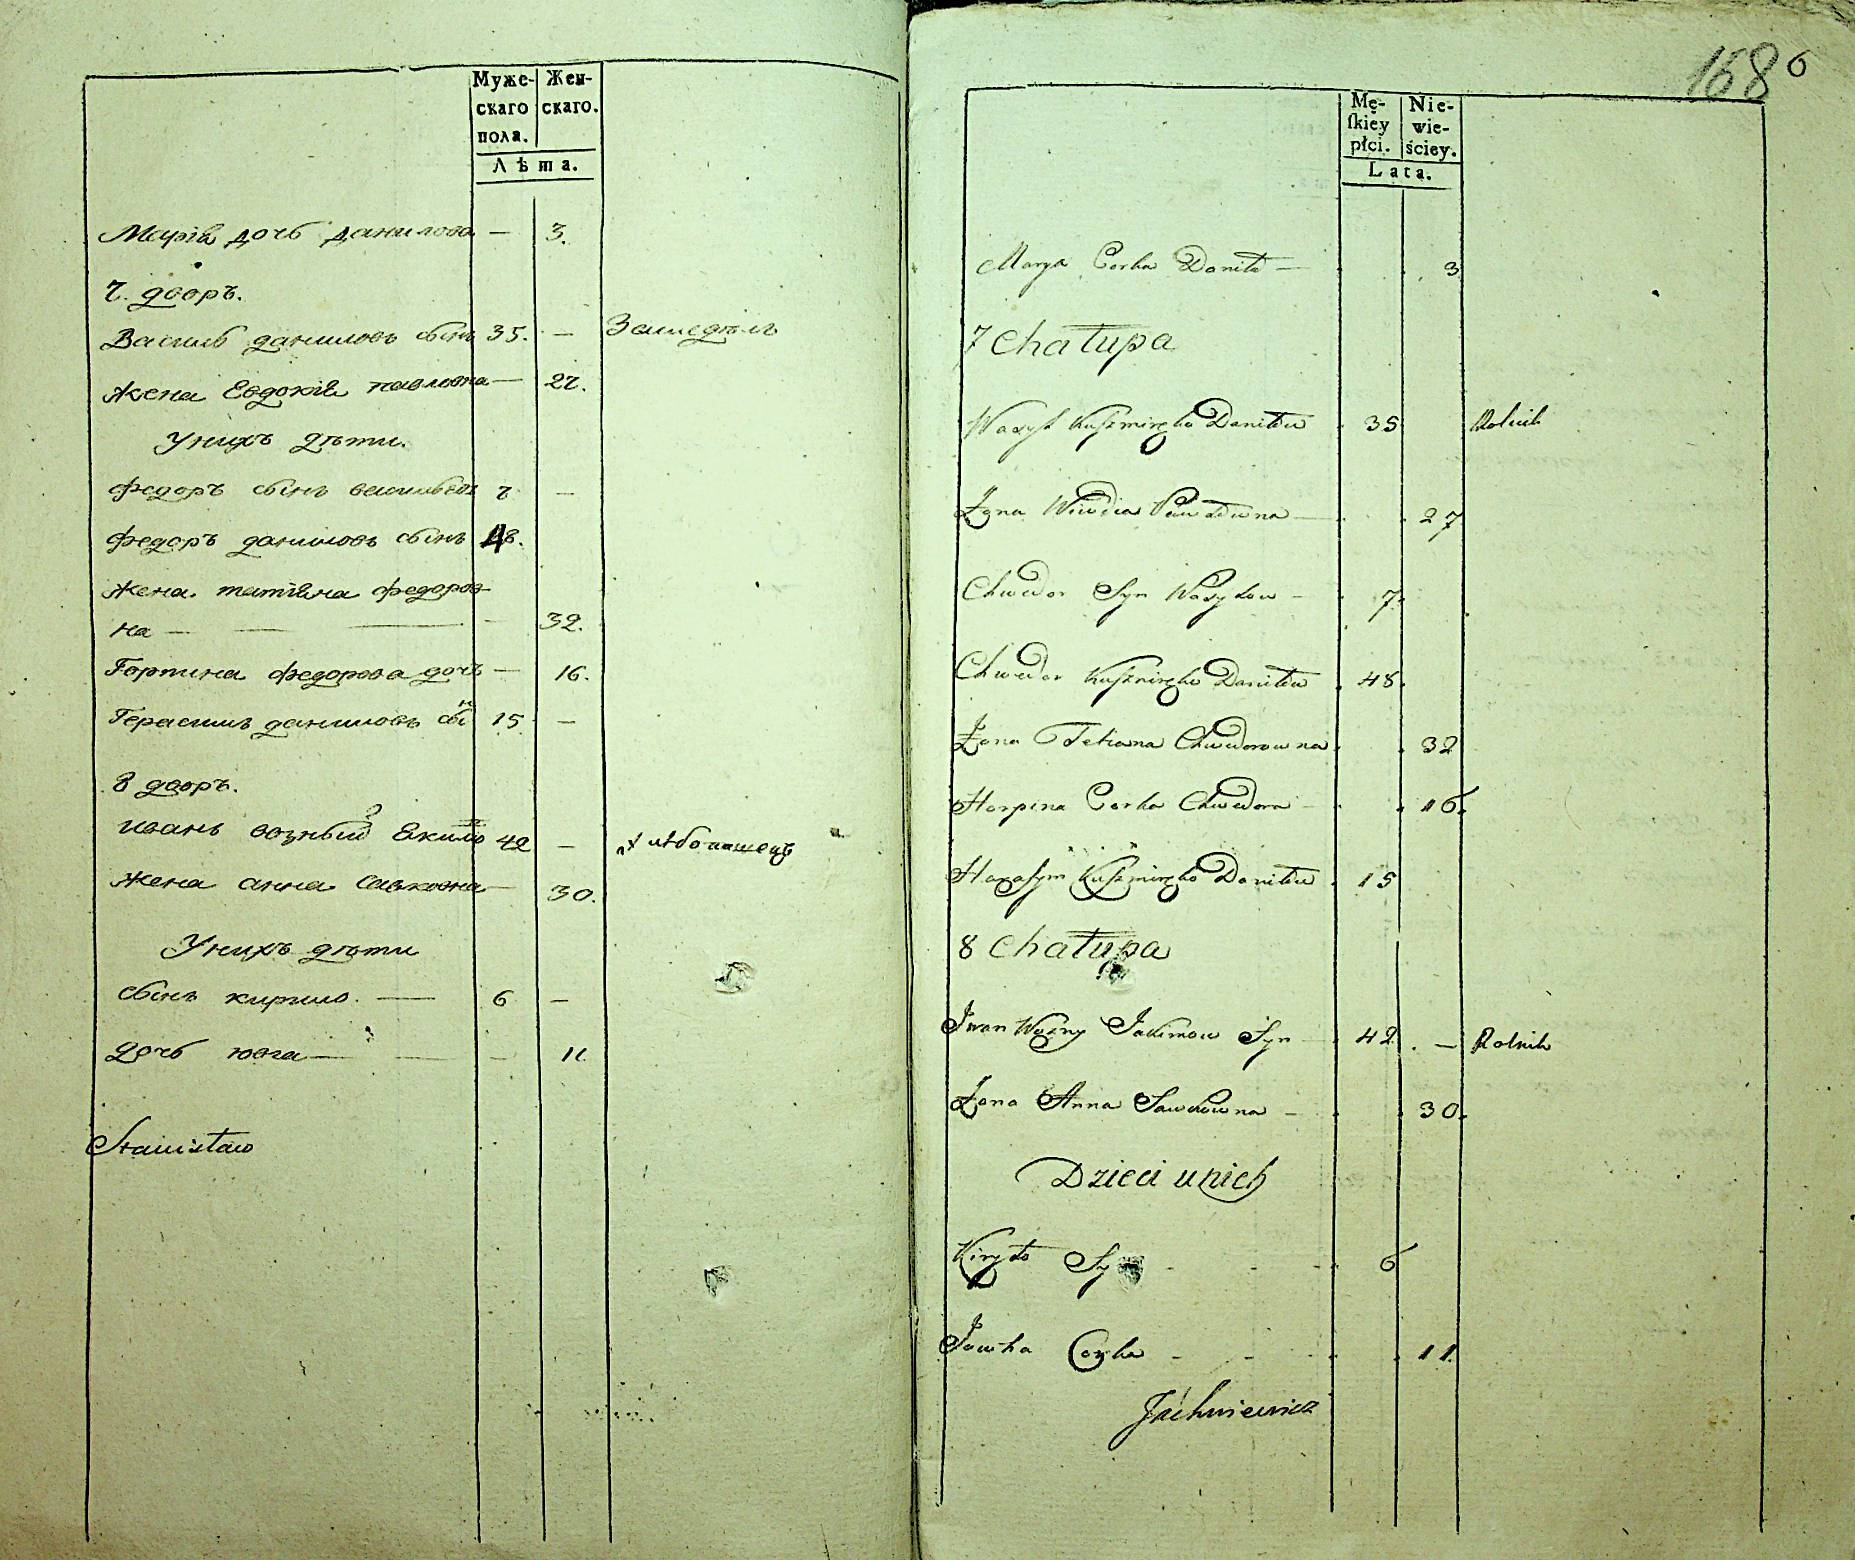 Муже-
скаго
пола.
Жен-
скаго.
Лѣта.
Марія дочь данилова — 3.
7. дворъ.
Василь даниловъ сынъ 35. —
Жена Евдокія павловна — 27.
Унихъ дѣти.
Федоръ сынъ васильевъ 7 —
Федоръ даниловъ сынъ 48.
Жена татіяна федоров-
на — — — — 32.
Горпина федорова дочь — 16.
Герасимъ даниловъ сынъ 15 —
8 дворъ.
иванъ возный Екимо 42 — хлѣбопашецъ
Жена анна савковна — 30.
Унихъ дѣти
сынъ кирило. — 6 —
Дочь ювга — — — 11
Stanisław
168 б
Mę-
ſkiey
płci.
Nie-
wie-
ściey.
Lata.
Marya Corka Daniło — 3
7 Chałupa
Wasyl Kuſzmireko Daniłow 35 Rolnik
Żona Wiwdia Pawłowna — 27
Chwedor Syn Wasylow — 7
Chwedor Kuſzmireko Daniłow 48
Żona Tetiana Chwedorowna 32
Horpina Corka Chwedora — 16.
Haraſym Kuſzmireko Daniłow 15
8 Chałupa
Jwan Wozny Jakimow Syn 42 — Rolnik
Żona Anna Sawkowna — 30.
Dzieci unich
Kiryło Sy 6
Jowha Corka — 11.
Jachniewicz